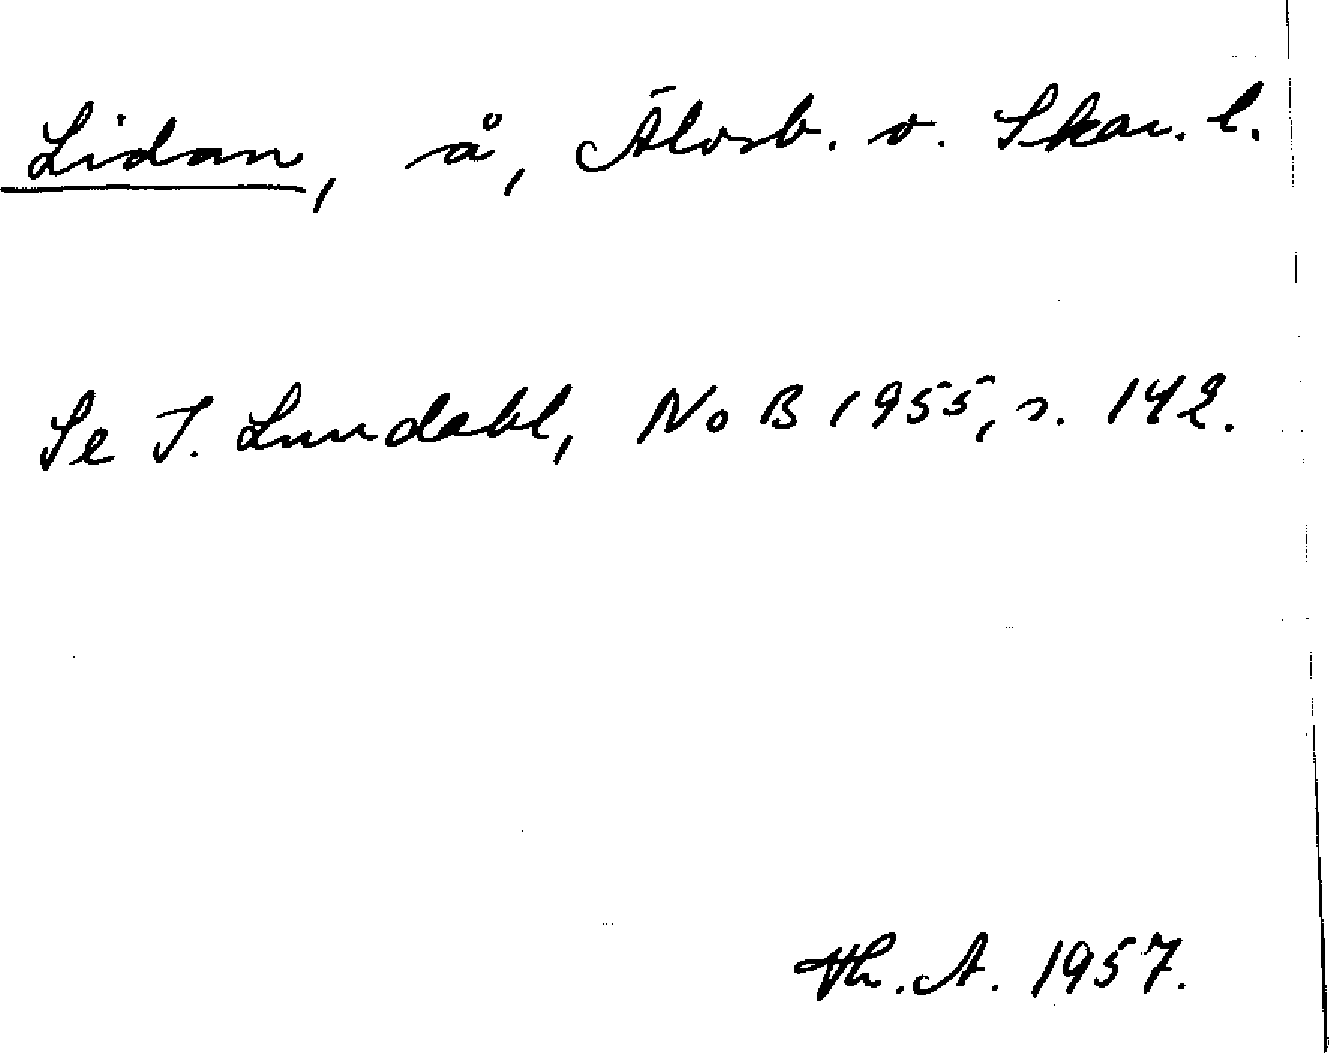 Lidan, å, Älvsb. o. Skar. l.
Se I. Lundahl, NoB 1955, s. 142.
Th. A. 1957.